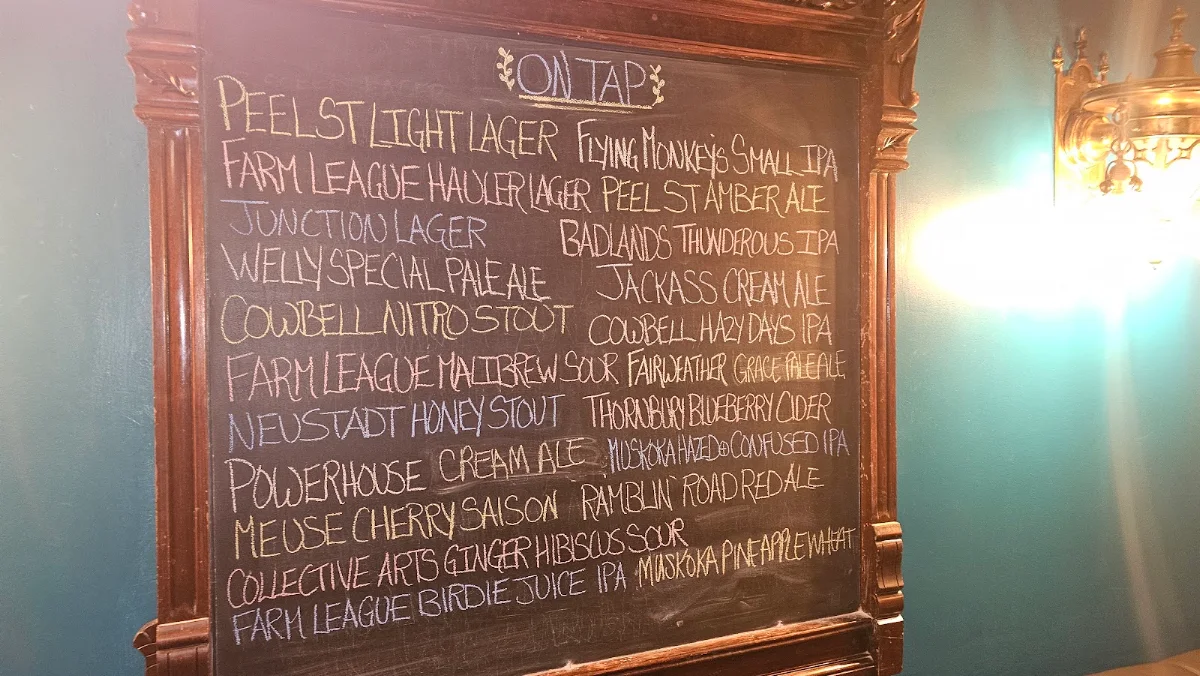 ON TAP
PEEL ST LIGHT LAGER FLYING MONKEYS SMALL IPA
FARM LEAGUE HAULER LAGER PEEL ST AMBER ALE
JUNCTION LAGER BADLANDS THUNDEROUS IPA
WELLY SPECIAL PALE ALE JACKASS CREAM ALE
COWBELL NITRO STOUT COWBELL HAZY DAYS IPA
FARM LEAGUE MALIBREW SOUR FAIRWEATHER GRACE PALE ALE
NEUSTADT HONEY STOUT THORNBURY BLUEBERRY CIDER
POWERHOUSE CREAM ALE MUSKOKA HAZED + CONFUSED IPA
MEUSE CHERRY SAISON RAMBLIN' ROAD RED ALE
COLLECTIVE ARTS GINGER HIBISCUS SOUR
FARM LEAGUE BIRDIE JUICE IPA MUSKOKA PINEAPPLE WHEAT